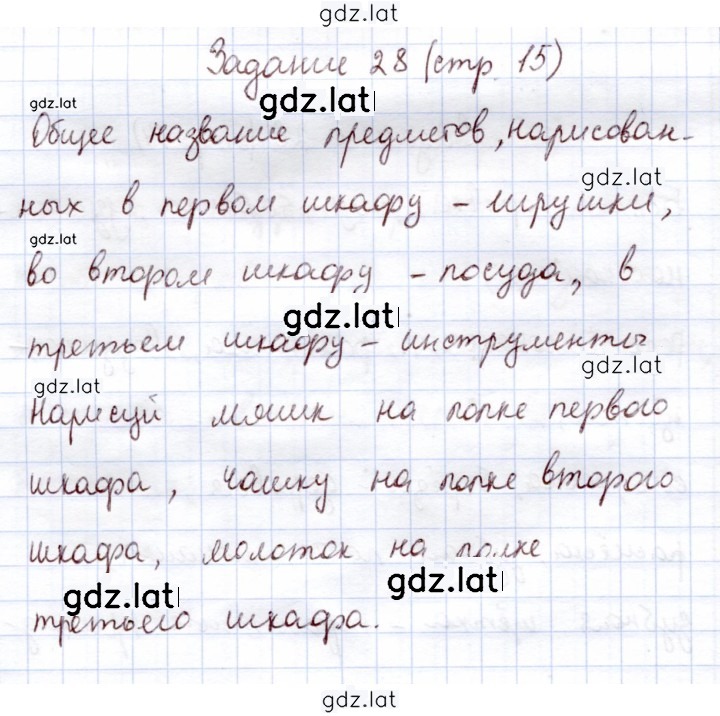 gdz.lat
Задание 28 (стр. 15)
gdz.lat
gdz.lat
Общее название предметов, нарисован-
gdz.lat
ных в первом шкафу - игрушки,
gdz.lat
во втором шкафу - посуда, в
gdz.lat
третьем шкафу - инструменты
gdz.lat
gdz.lat
Нарисуй мячик на полке первого
шкафа, чашку на полке второго
шкафа, молоток на полке
gdz.lat
gdz.lat
третьего шкафа.
gdz.lat